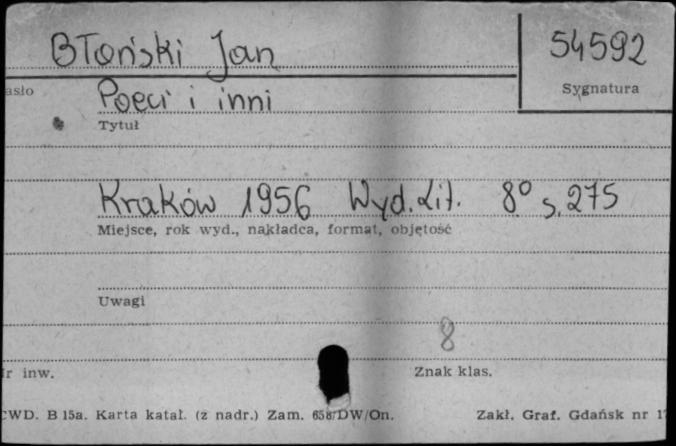 Błoński Jan 54592
asło Sygnatura
Poeci i inni
Tytuł
Kraków 1956 Wyd. Lit. 8° s. 275
Miejsce, rok wyd., nakładca, format, objętość
Uwagi
8
r inw. Znak klas.
CWD. B 15a. Karta katal. (z nadr.) Zam. 658/DW/On. Zakł. Graf. Gdańsk nr 1